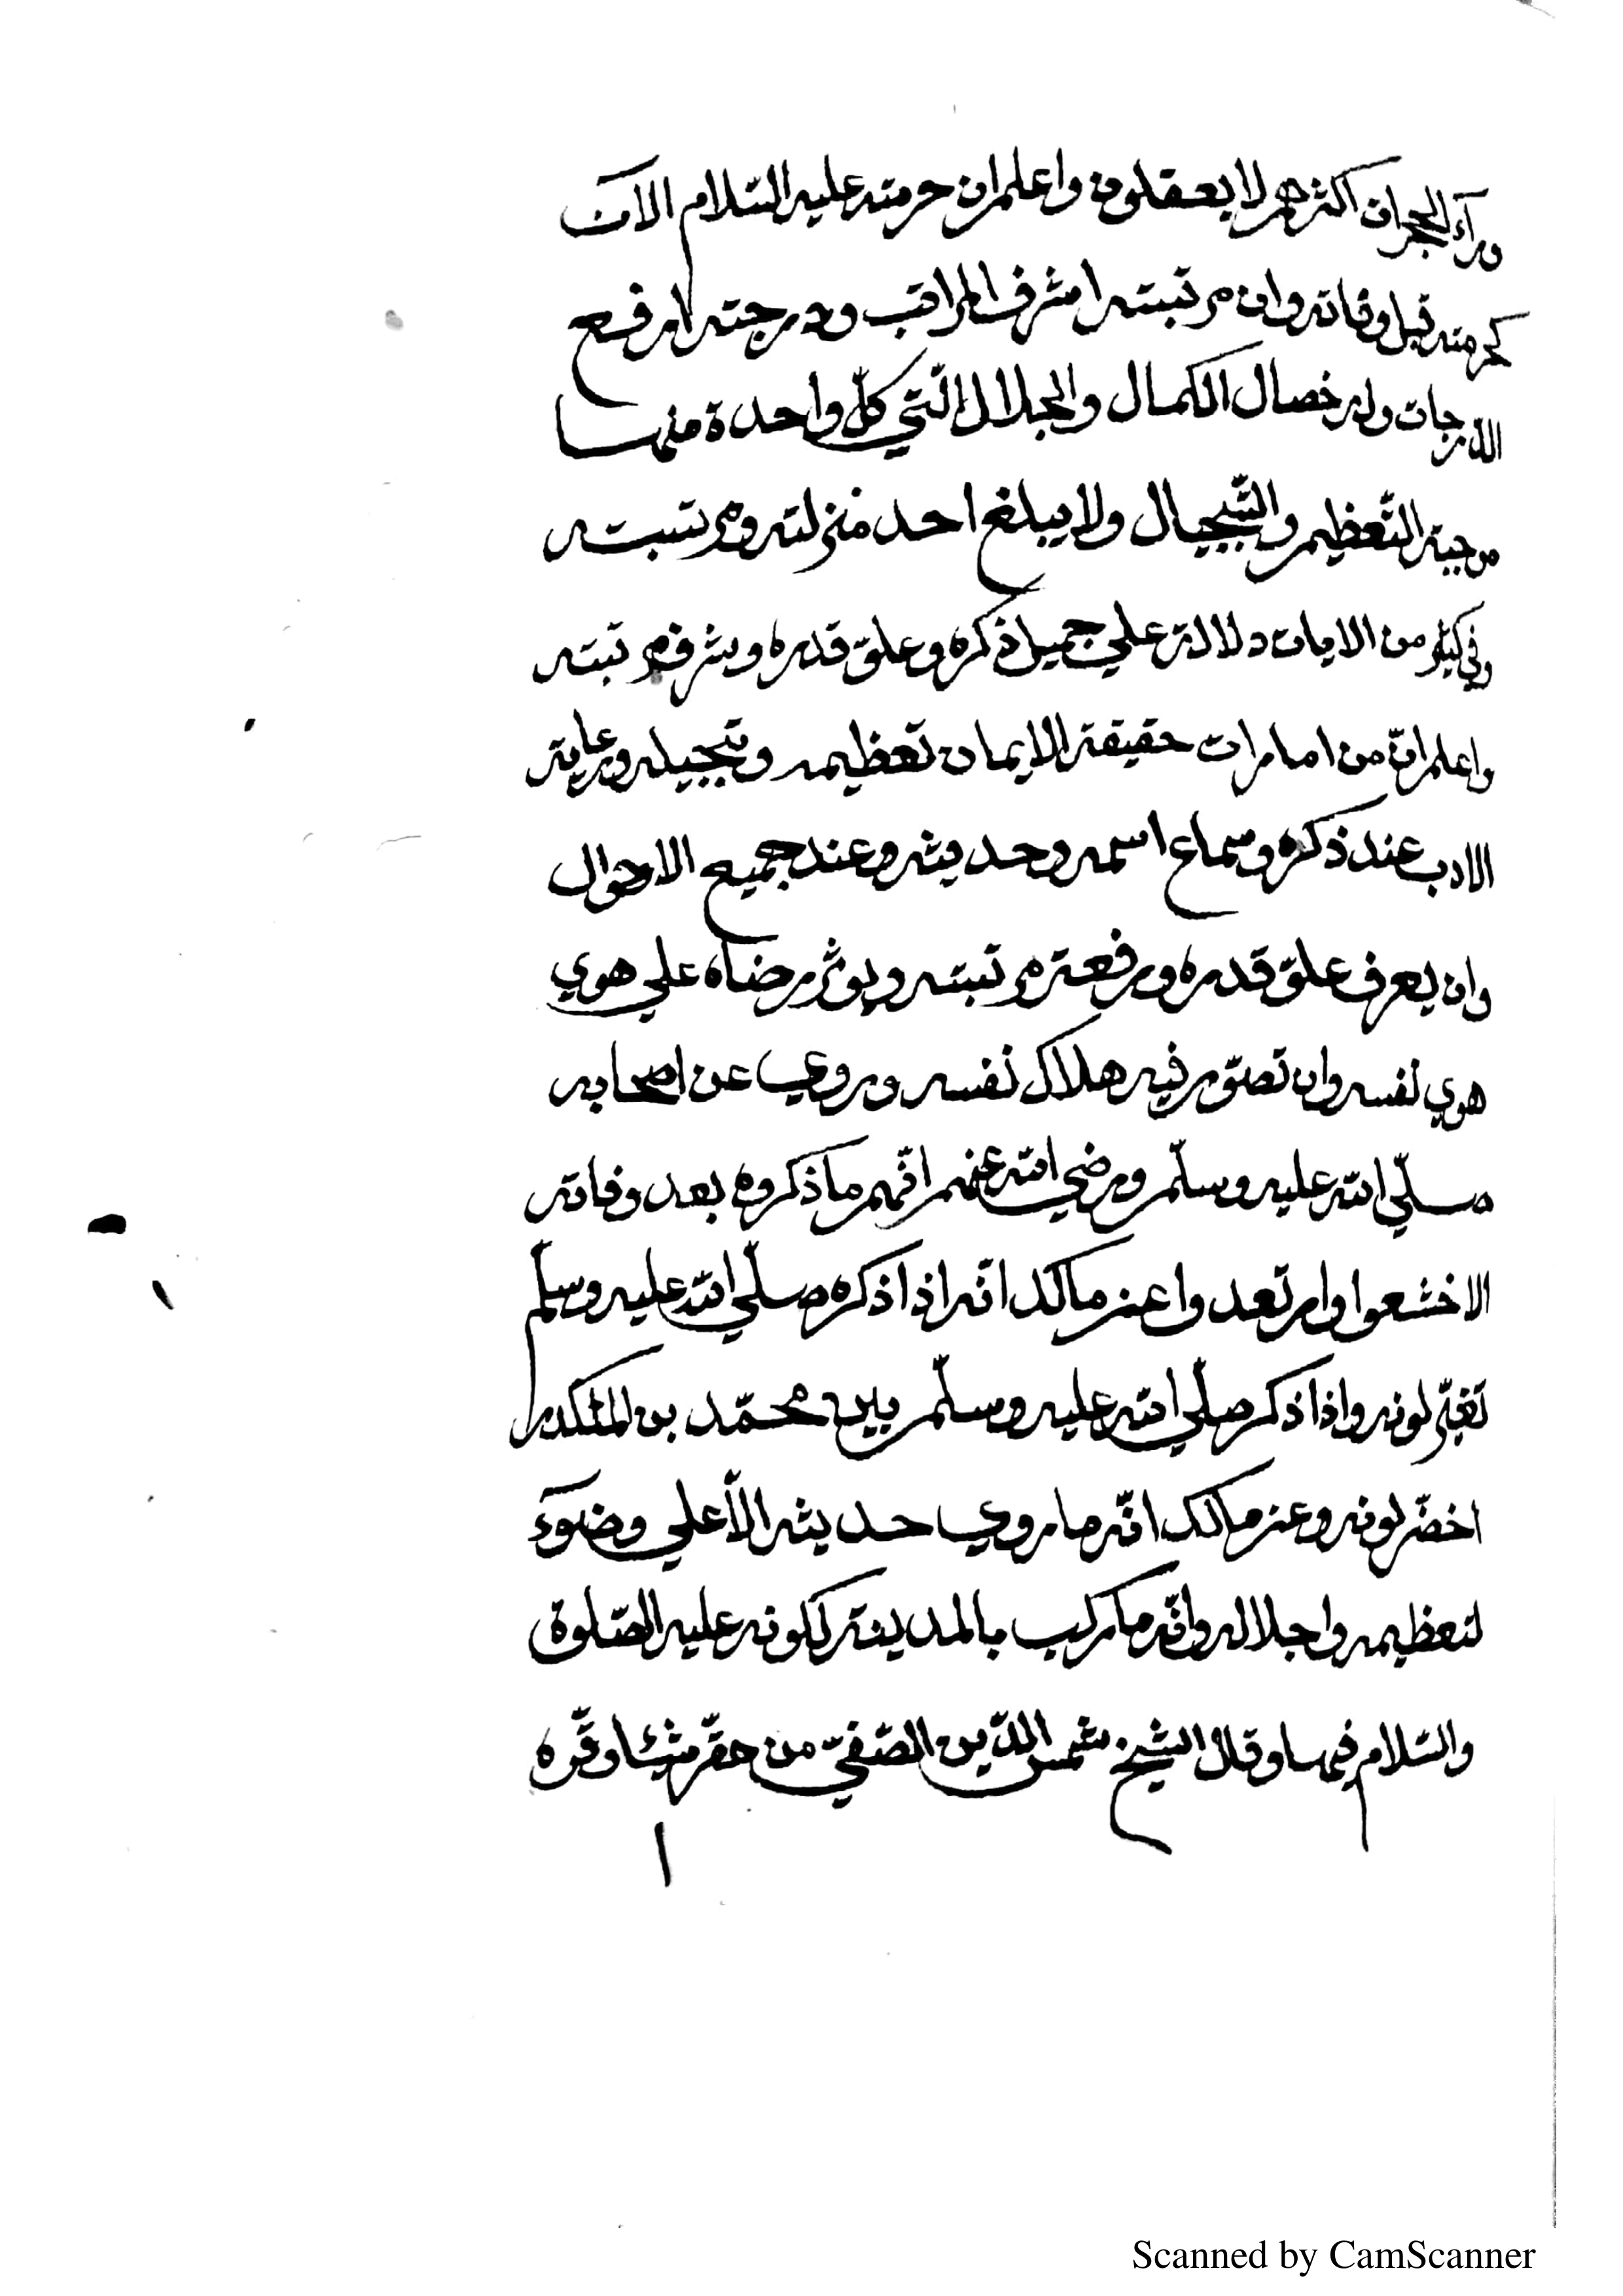 ورآء الحجرات اكثرهم لا يعقلون واعلم ان حرمته عليه السّلام الآن
كحرمته قبل وفاته وان مرتبته اشرف المراتب ودرجته ارفع
الدرجات وله خصال الكمال والجلال الّتي كلّ واحدة منها
موجبة التّعظيم والتّبجيال ولا يبلغ احد منزلته ومرتبته
وفي كثير من الايات دلالة علي جميل ذكره وعلوّ قدره وشرف مرتبته
واعلم انّ من امارات حقيقة الايمان تعظيمه وتبجيله ورعاية
الادب عند ذكره وسماع اسمه وحديثه وعند جميع الاحوال
وان يعرف علوّ قدره ورفعة مرتبته ويوثر رضاه علي هوي
هوي نفسه وان تصوّر فيه هلاك نفسه وروي عن اصحابه
صلّي الله عليه وسلّم ورضي الله عنهم انّهم ما ذكروه بعد وفاته
الا خشعوا وارتعدوا عن مالك انّه اذا ذكره صلّي الله عليه وسلّم
تغيّر لونه واذا ذكر صلّي الله عليه وسلّم بين محمّد بن المنكدر
اخضّر لونه وعن مالك انّه ما روي حديثه الّا علي وضوء
لتعظيمه واجلاله وانّه ما ركب بالمدينة لكونه عليه الصّلوة
والسّلام فيها وقال الشيخ شمس الدّين الصّفيّ من حقّر شيئا وقّره
Scanned by CamScanner